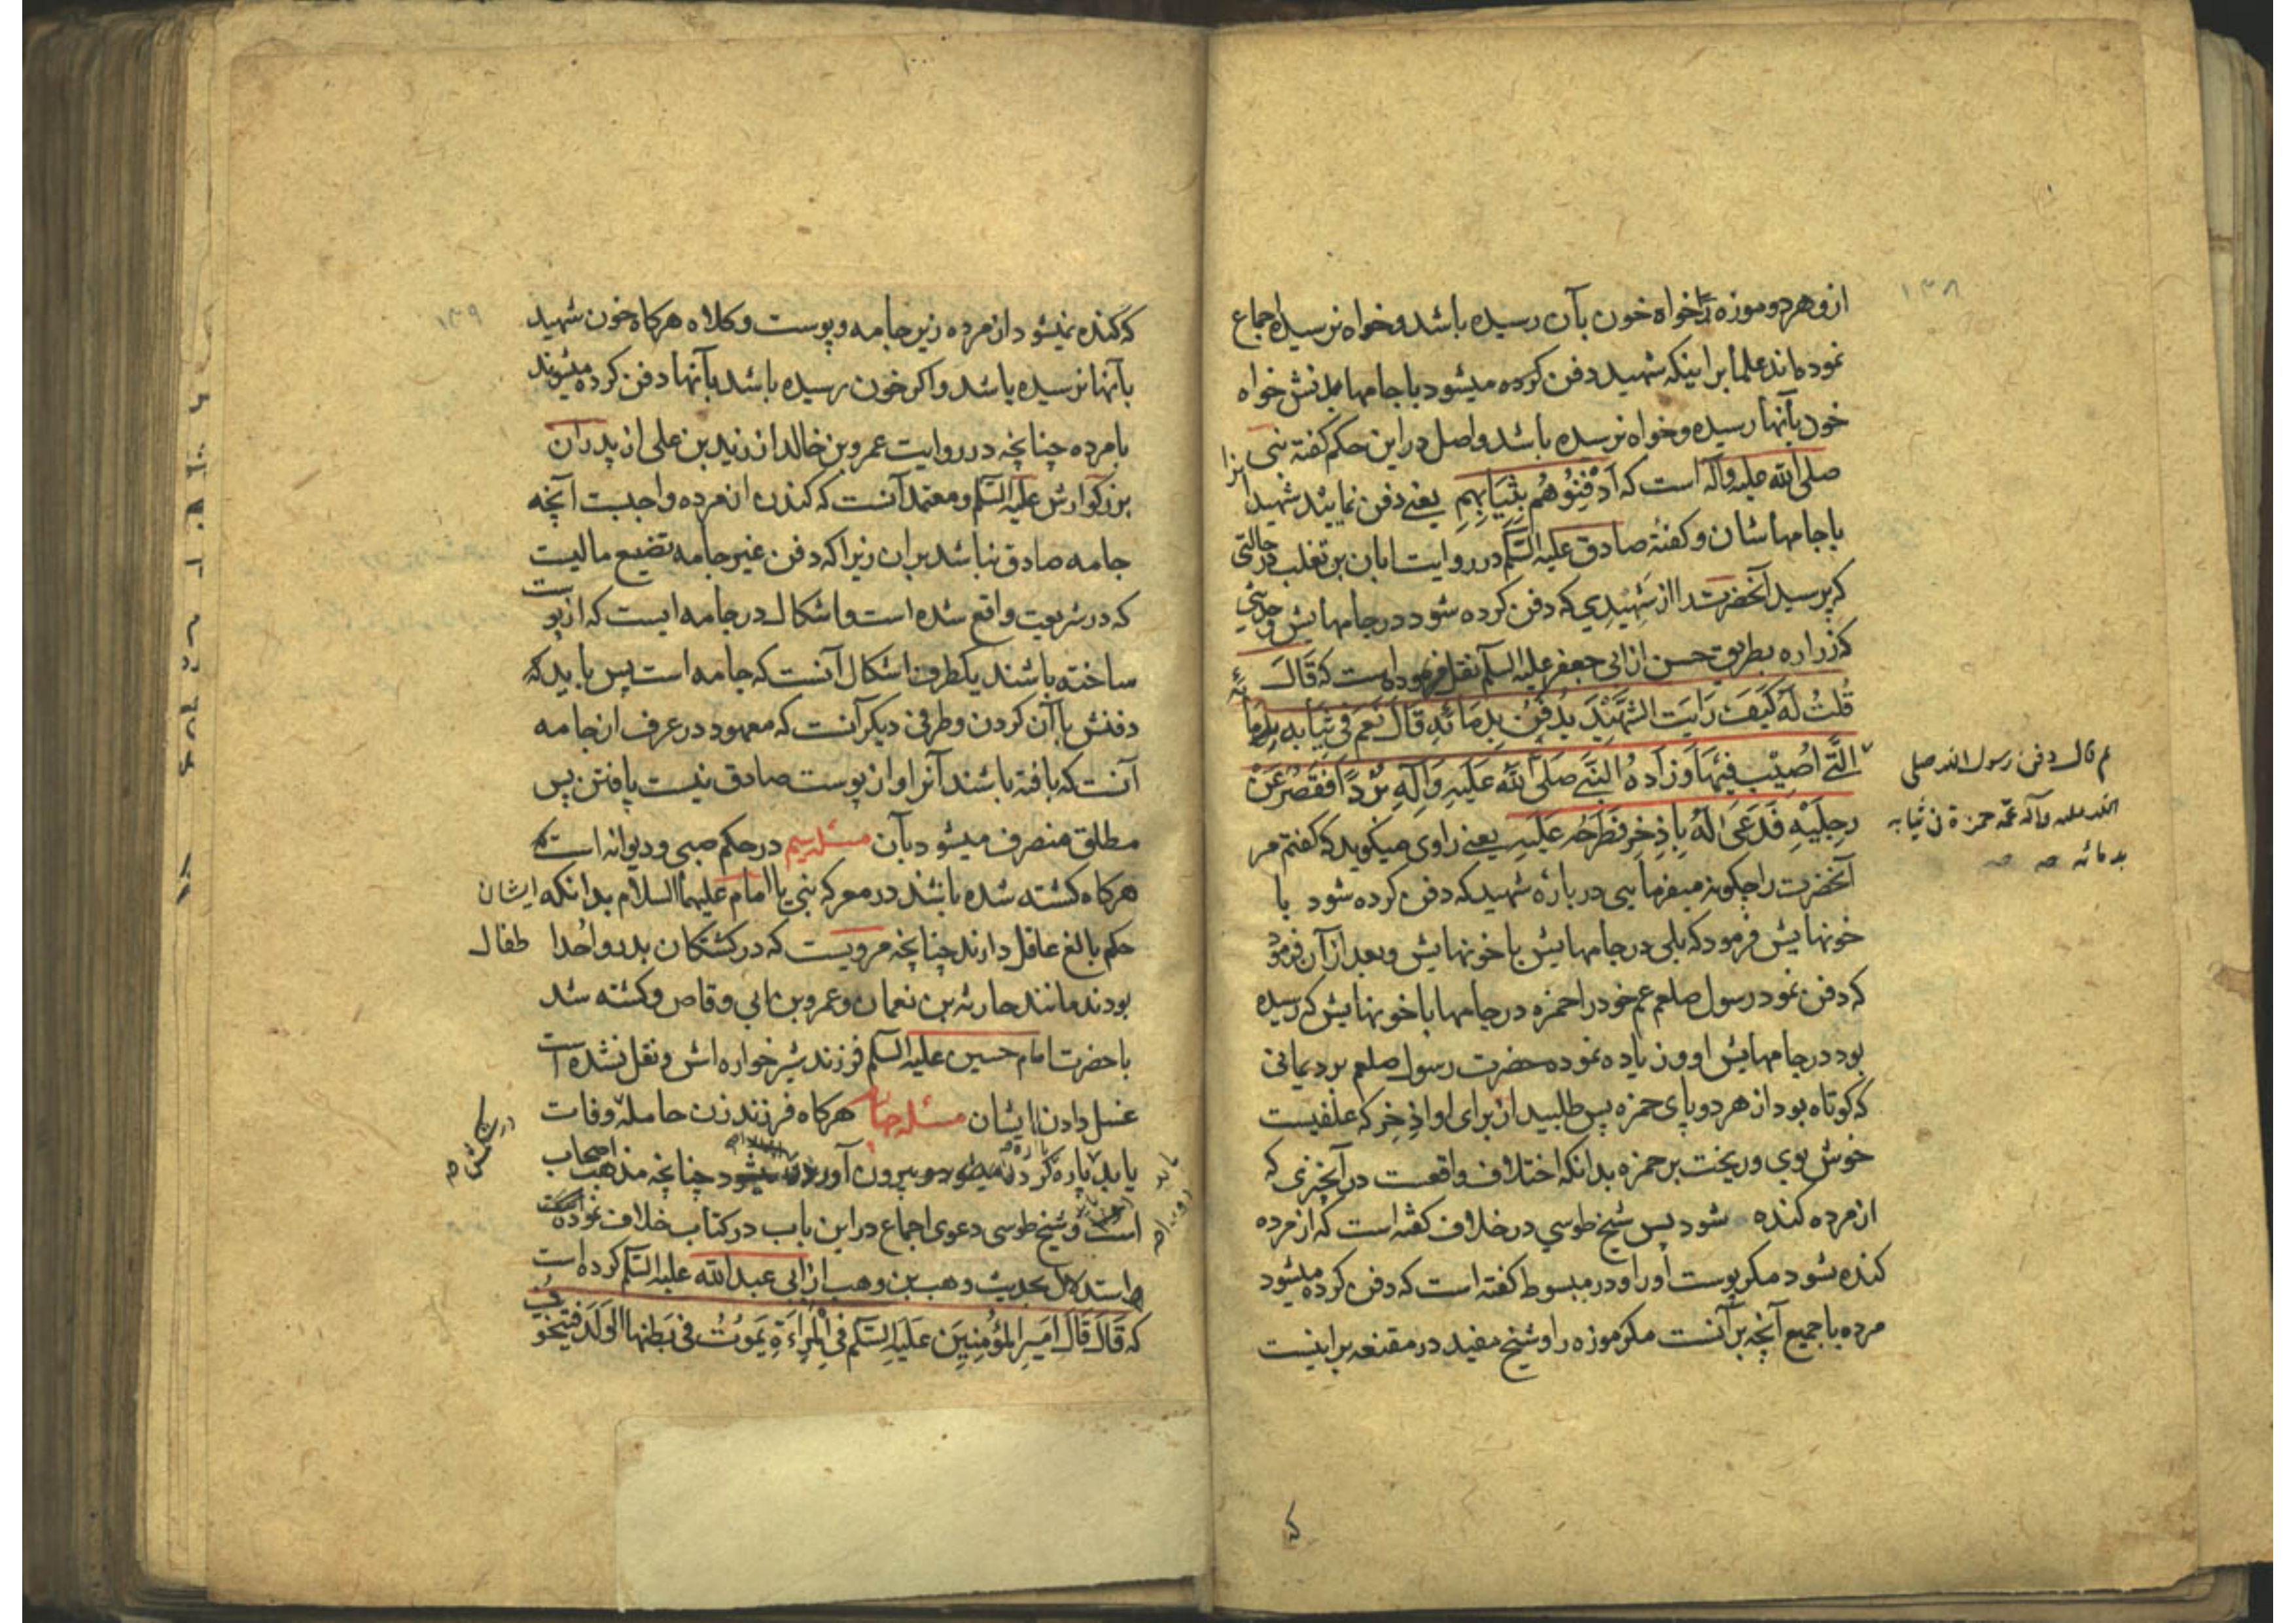 ۱۳۸
ازو هر دو موزه را خواه خون بآن رسیده باشد و خواه نرسیده اجماع
نموده‌اند علما بر اینکه شهید دفن کرده میشود با جامهای بدنش خواه
خون بآنها رسیده و خواه نرسیده باشد و اصل در این حکم کفتهٔ نبی
صلی الله علیه وآله است که اَدْفِنُوهُم بِثِیَابِهِم یعنی دفن نمایید شهیدا نرا
با جامهاشان و کفتهٔ صادق علیه السلم در روایت ابان بن تغلب در حالتی
که پرسید آنحضرت را از شهیدی که دفن کرده شود در جامهایش و حدیثی
که زراره بطریق حسن از ابی جعفر علیه السلم نقل فرموده است که قَالَ
قُلتُ لَهُ کَیفَ رَایَت الشَّهِیْدَ یُدفَنُ بِدِمَائِهِ قَالَ نَعَم فی ثِیَابِه بِدِمَا ئِهِ
الَّتی اُصِیْبَ فِیْهَا وَ زَادَهُ النَّبی صَلی اللّٰه عَلَیهِ وَالِهِ بُرْدًا فَقَصُرَ عَنْ
رِجلَیْهِ فَدَعَی لَهُ بِاِذخِرٍ فَطَرَحَه عَلَیهِ یعنی راوی میکوید که کفتم مر
آنحضرت را چکونه میفرمایی در بارهٔ شهید که دفن کرده شود با
خونهایش فرمود که بلی در جامهایش با خونهایش و بعد از آن فرمود
که دفن نمود رسول صلعم عم خود را حمزه در جامها با خونهایش که رسیده
بود در جامهایش او و زیاده نموده حضرت رسول صلعم برد یمانی
که کوتاه بود از هر دو پای حمزه پس طلبید از برای او اذِخِر که علفیست
خوش بوی و ریخت بر حمزه بدانکه اختلاف واقعست در آنچیزی که
از مرده کنده شود پس شیخ طوسی در خلاف کفته است که از مرده
کنده شود مکر پوست او را و در مبسوط کفته است که دفن کرده میشود
مرده با جمیع آنچه بر آنست مکر موزه را و شیخ مفید در مقنعه بر اینست
ثم قال دفن رسول الله صلی
الله علیه وآله عمّه حمزة فی ثیابه
بدمائه صه صه
که
۱۳۹
که کنده نمیشود از مرده زیر جامه و پوست و کلاه هرکاه خون شهید
بآنها نرسیده باشد و اکر خون رسیده باشد بآنها دفن کرده میشوند
با مرده چنانچه در روایت عمرو بن خالد از زید بن علی از پدران
بزرکوارش علیه السلم و معتمد آنست که کندن از مرده واجبست آنچه
جامه صادق نباشد بر ان زیرا که دفن غیر جامه تضیع مالیت
که در شریعت واقع شده است و اشکال در جامه ایست که از پوست
ساخته باشند یکطرف اشکال آنست که جامه است پس باید که
دفنش با آن کردن و طرفی دیکر آنست که معهود در عرف از جامه
آنست که بافته باشند آنرا و از پوست صادق نیست یافتن پس
مطلق منصرف میشود بآن مسئله سیم در حکم صبی و دیوانه است که
هرکاه کشته شده باشند در معرکه نبی یا امام علیهما السلام بدانکه ایشان
حکم بالغ عاقل دارند چنانچه مرویست که در کشتکان بدر و اُحد اطفال
بودند مانند حارثه بن نعمان و عمرو بن ابی وقاص و کشته شد
با حضرت امام حسین علیه السلم فرزند شیرخواره اش و نقل نشده است
غسل دادن ایشان مسئله چهارم هرکاه فرزند زن حامله وفات
یابد پاره کرده بیرون آورده میشود چنانچه مذهب اصحاب
است و شیخ طوسی دعوی اجماع در این باب در کتاب خلاف نموده است
و استدلال بحدیث وهب بن وهب از ابی عبد الله علیه السلم کرده است
که قَالَ قَالَ اَمَیرِ المُؤمِنِیِنَ عَلَیَهِ السَّلَم فِی الْمَرِاءَةِ یَمَوُتُ فی بَطنِها الوَلَد فَیُتَخَوَّفُ
در شکمش صه